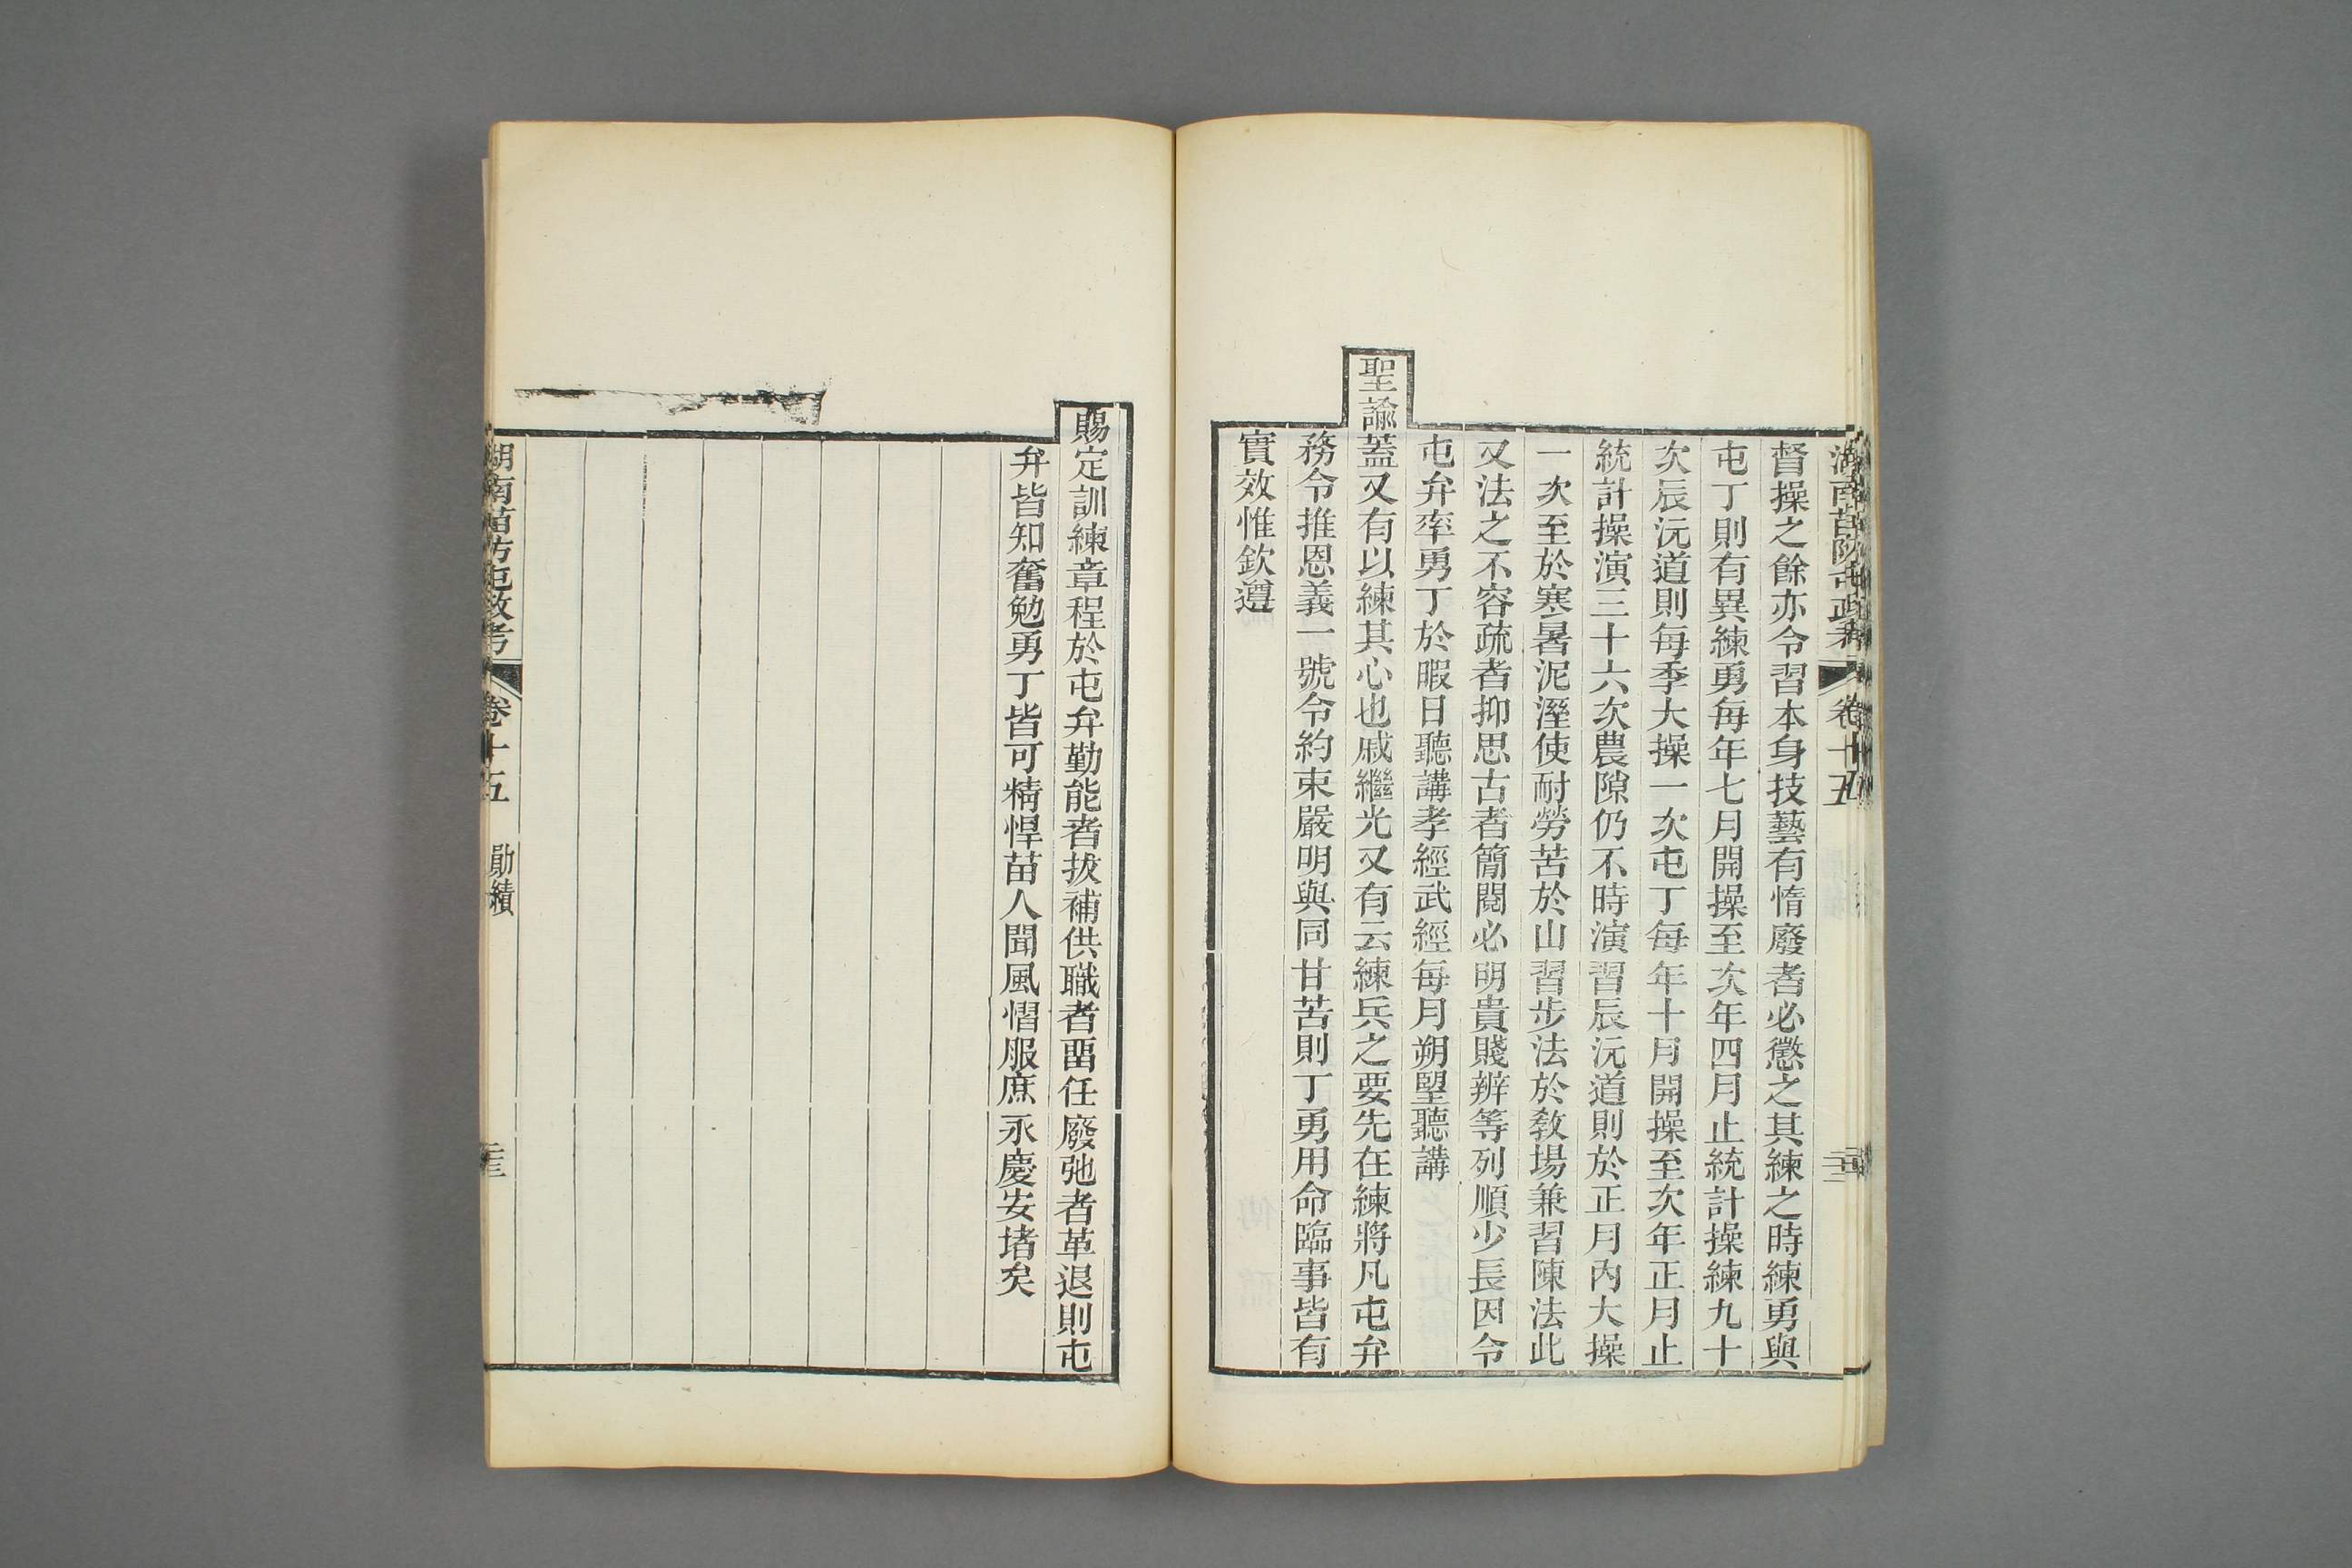 湖南苗防屯政考 卷十五
督操之餘亦令習本身技藝有惰廢者必懲之其練之時練勇與
屯丁則有異練勇每年七月開操至次年四月止統計操練九十
次辰沅道則每季大操一次屯丁每年十月開操至次年正月止
統計操演三十六次農隙仍不時演習辰沅道則於正月內大操
一次至於寒暑泥溼使耐勞苦於山習步法於敎場兼習陳法此
又法之不容疏者抑思古者簡閱必明貴賤辨等列順少長因令
屯弁率勇丁於暇日聽講孝經武經每月朔朢聽講
聖諭蓋又有以練其心也戚繼光又有云練兵之要先在練將凡屯弁
務令推恩義一號令約束嚴明與同甘苦則丁勇用命臨事皆有
實效惟欽遵
賜定訓練章程於屯弁勤能者拔補供職者畱任廢弛者革退則屯
弁皆知奮勉勇丁皆可精悍苗人聞風慴服庶永慶安堵矣
湖南苗防屯政考 卷十五 勛績